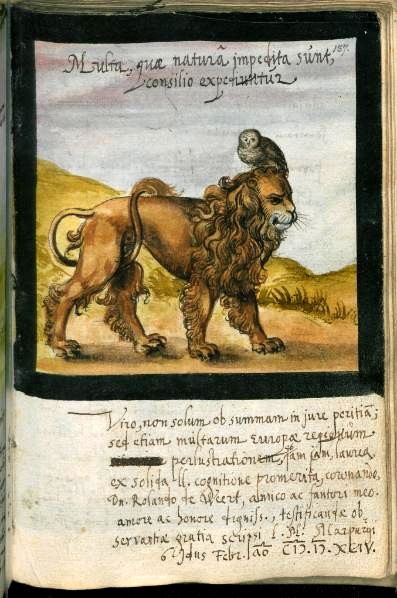 Multa, quæ naturâ impedita sunt, 157.
consilio expediuntur
Viro, non solum ob summam in jure peritiã;
sed etiam multarum Europæ regionum
perlustrationem, jam jam, laurea
ex solida ll. cognitione promerita, coronando,
Dn. Rolando de Weert, amico ac fautori meo
amore ac honore digniss., testificandæ ob
servantiæ gratia scripsi Marpurgi
6 Idus Febr. aõ